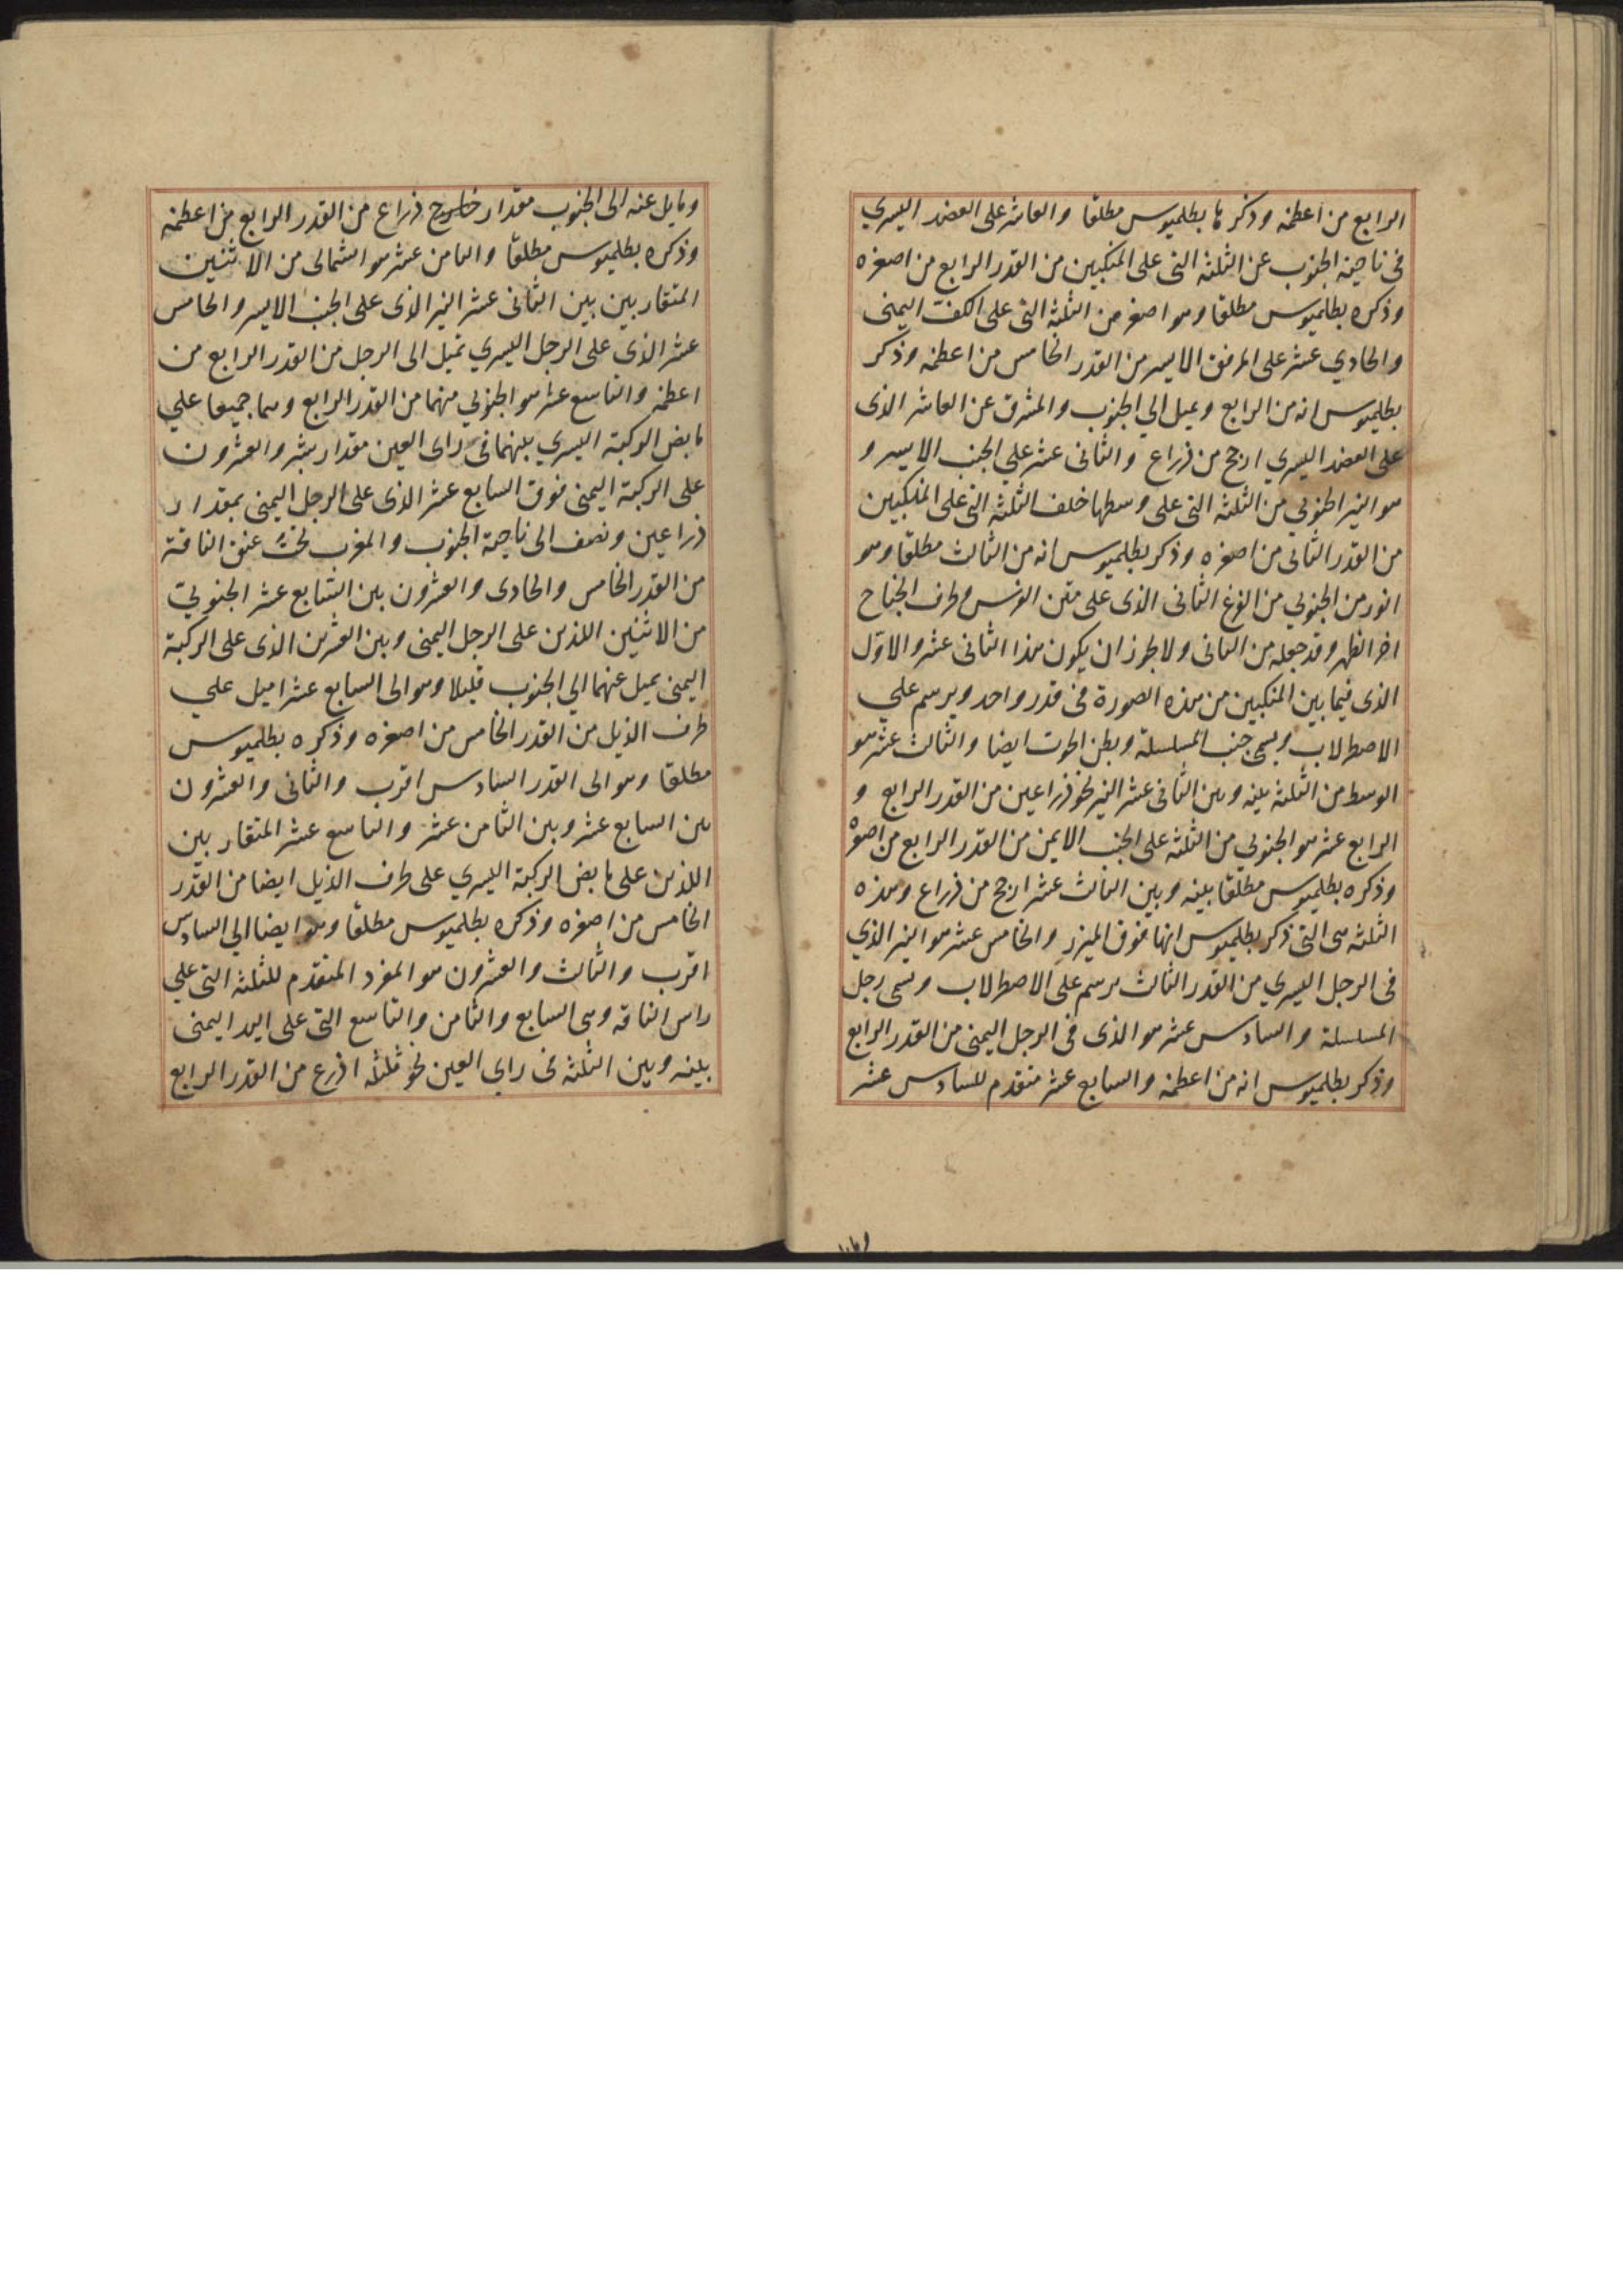 الرابع من اعظمه وذكرها بطلميوس مطلقا والعاشر على العضد اليسري
فى ناحية الجنوب عن الثلثه التى على المنكبين من القدر الرابع من اصغره
وذكره بطلميوس مطلقا وهو اصغر من الثلثه التى على الكف اليمنى
والحادي عشر على المرفق الايسر من القدر الخامس من اعظمه وذكر
بطلميوس انه من الرابع ويميل الي الجنوب والمشرق عن العاشر الذى
على العضد اليسري ارجح من ذراع والثانى عشر علي الجنب الايسر و
هو النير الجنوبي من الثلثه التى على وسطها خلف الثلثه التى على المنكبين
من القدر الثانى من اصغره وذكر بطلميوس انه من الثالث مطلقا وهو
انور من الجنوبي من الفرغ الثانى الذى على متن الفرس وطرف الجناح
اخر الظهر وقد جعله من الثانى ولا يجوز ان يكون هذا الثانى عشر والاوّل
الذى فيما بين المنكبين من هذه الصورة فى قدر واحد ويرسم علي
الاصطرلاب ويسمى جنب المسلسلة وبطن الحوت ايضا والثالث عشر هو
الوسط من الثلثه بينه وبين الثانى عشر النير نحو ذراعين من القدر الرابع و
الرابع عشر هو الجنوبي من الثلثه على الجنب الايمن من القدر الرابع من اصغره
وذكره بطلميوس مطلقا بينه وبين الثالث عشر ارجح من ذراع وهذه
الثلثه هى التى ذكر بطلميوس انها فوق الميزر والخامس عشر هو النير الذي
فى الرجل اليسري من القدر الثالث يرسم على الاصطرلاب ويسمى رجل
المسلسلة والسادس عشر هو الذى فى الرجل اليمنى من القدر الرابع
وذكر بطلميوس انه من اعظمه والسابع عشر متقدم للسادس عشر
ومايل عنه الى الجنوب مقدار ذراع من القدر الرابع من اعظمه
وذكره بطلميوس مطلقا والثامن عشر هو الشمالى من الاثنين
المتقاربين بين الثانى عشر النير الذى على الجنب الايسر والخامس
عشر الذي على الرجل اليسري تميل الى الرجل من القدر الرابع من
اعظمه والتاسع عشر هو الجنوبي منهما من القدر الرابع وهما جميعا علي
مابض الركبة اليسري بينهما فى راى العين مقدار شبر والعشرون
على الركبة اليمنى فوق السابع عشر الذى على الرجل اليمنى بمقدار
ذراعين ونصف الى ناحية الجنوب والمغرب تحت عنق الناقة
من القدر الخامس والحادى والعشرون بين السّابع عشر الجنوبيّ
من الاثنين اللذين على الرجل اليمنى وبين العشرين الذى على الركبة
اليمنى يميل عنهما الي الجنوب قليلا وهو الى السابع عشر اميل علي
طرف الذيل من القدر الخامس من اصغره وذكره بطلميوس
مطلقا وهو الى القدر السادس اقرب والثانى والعشرون
بين السابع عشر وبين الثامن عشر والتاسع عشر المتقاربين
اللذين على مابض الركبة اليسري على طرف الذيل ايضا من القدر
الخامس من اصغره وذكره بطلميوس مطلقا وهو ايضا الي السادس
اقرب والثالث والعشرون هو المفرد المتقدم للثلثه التى علي
راس الناقه وهى السابع والثامن والتاسع التى على اليد اليمنى
بينه وبين الثلثه فى راي العين نحو ثلثه اذرع من القدر الرابع